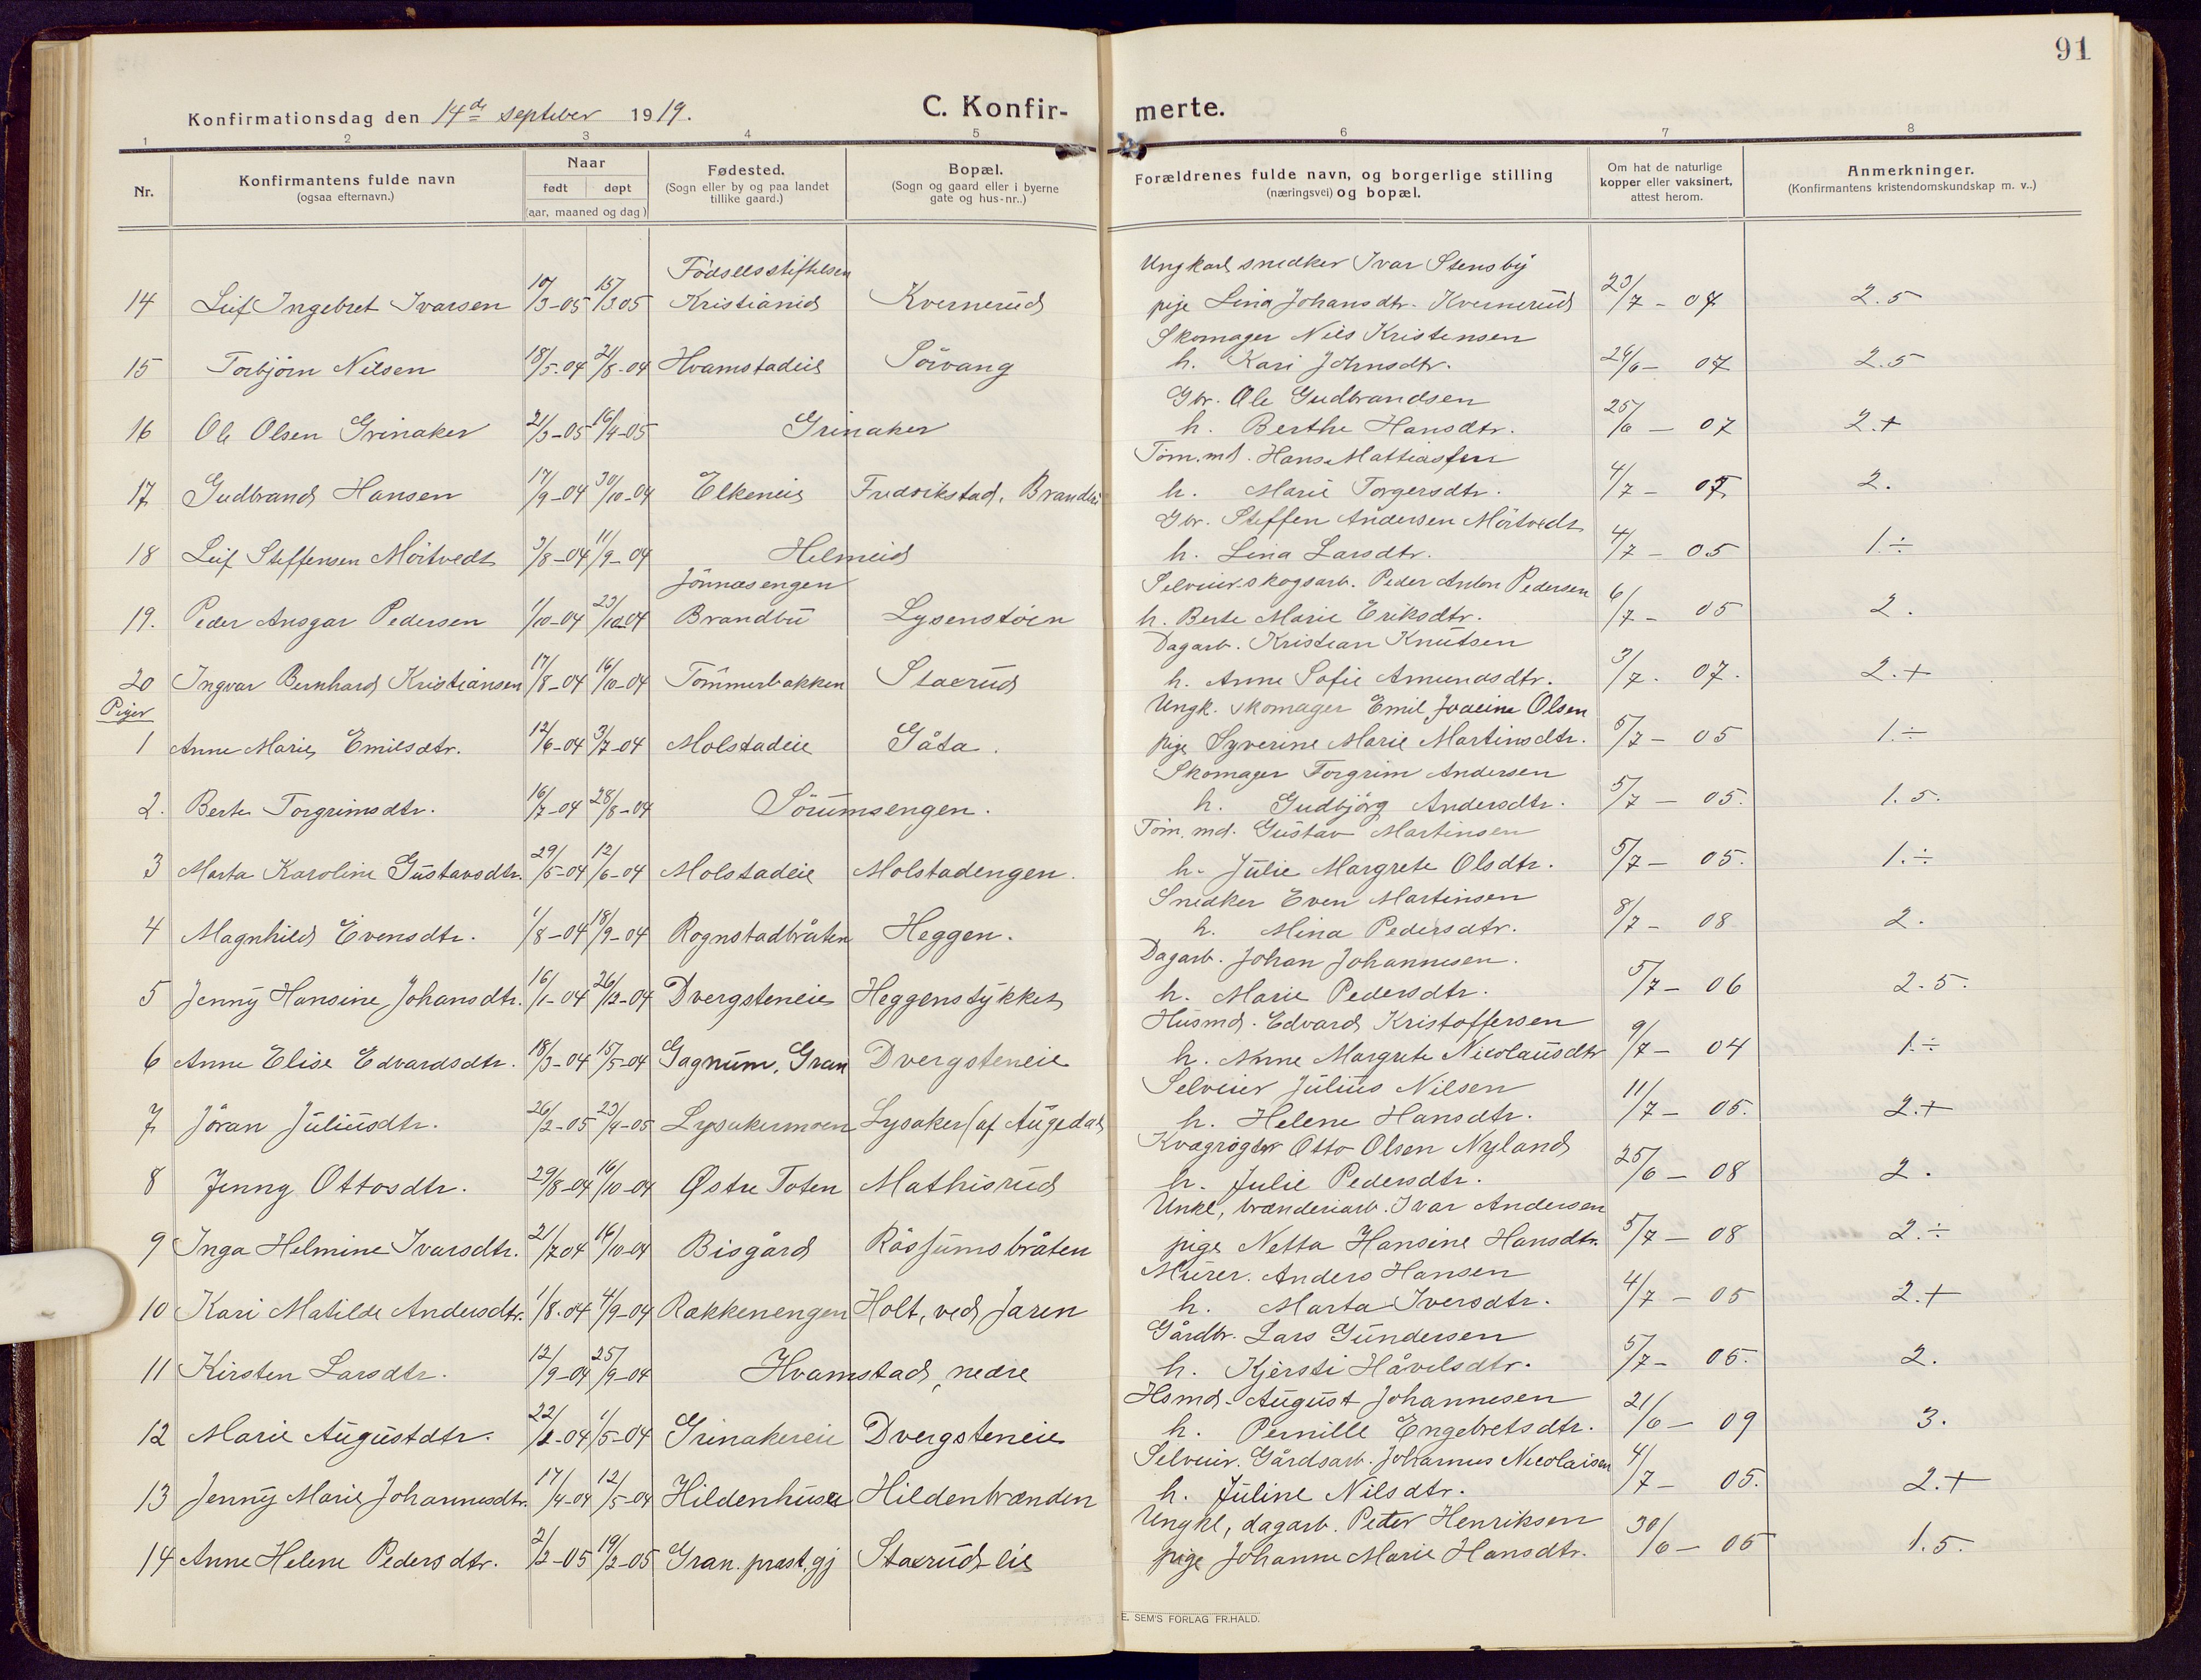 91
Konfirmationsdag den 14de septeber 1919.
C. Konfir- merte.
1 2 3 4 5 6 7 8
Nr.
Konfirmantens fulde navn
(ogsaa efternavn.)
Naar
født døpt
(aar, maaned og dag)
Fødested.
(Sogn eller by og paa landet
tillike gaard.)
Bopæl.
(Sogn og gaard eller i byerne
gate og hus-nr..)
Forældrenes fulde navn, og borgerlige stilling
(næringsvei) og bopæl.
Om hat de naturlige
kopper eller vaksinert,
attest herom.
Anmerkninger.
(Konfirmantens kristendomskundskap m. v..)
Fødselsstiftelsen Ungkarl snedker Ivar Stensby
14 Leif Ingebret Ivarsen 10/3-05 15/3 05 Kristiania Kvernerud pige Lina Johansdtr. Kvernerud 23/7 - 07 2.5
Skomager Nils Kristensen
15 Torbjörn Nilsen 18/5-04 21/8-04 Hvamstadeie Sörvang h. Kari Johnsdtr. 24/6 - 07 2.5
Gbr. Ole Gudbrandsen
16 Ole Olsen Grinaker 21/3-05 16/4-05 Grinaker h. Berthe Hansdtr. 25/6 - 07 2.+
Töm.md. Hans Mattiassen
17 Gudbrand Hansen 17/9-04 30/10-04 Elkeneie Fredrikstad, Brandbu h. Marie Torgersdtr. 4/7 - 05 2.
Gbr. Steffen Andersen Mörtvedt
18 Leif Steffensen Mörtvedt 3/8-04 11/9-04 Helmeid h. Lina Larsdtr. 4/7 - 05 1 ÷
Jönnasengen Selveier skogsarb. Peder Anton Pedersen
19. Peder Ansgar Pedersen 1/10-04 23/10 04 Brandbu Lysenstöen h. Berte Marie Eriksdtr. 6/7 - 05 2.
Dagarb. Kristian Knutsen
20 Ingvar Bernhard Kristiansen 17/8-04 16/10-04 Tömmerbakken Staxrud h. Anne Sofie Amundsdtr. 3/7. 07. 2.+
Piger Ungk. skomager Emil Olsen
1 Anne Marie Emilsdtr. 12/6-04 3/7-04 Molstadeie Gåta. pige Syverine Marie Martinsdtr. 5/7 - 05 1.÷
Skomager Torgrim Andersen
2. Berte Torgrimsdtr. 16/7-04 28/8-04 Sörumsengen. h. Gudbjörg Andersdtr. 5/7 - 05. 1.5.
Töm. md. Gustav Martinsen
3 Marta Karoline Gustavsdtr. 29/5-04 12/6-04 Molstadeie Molstadengen. h. Julie Margrete Olsdtr. 5/7 - 05. 1.÷
Snedker Even Martinsen
4 Magnhild Evensdtr. 1/8-04 18/9-04 Rognstadbråten Heggen. h. Mina Pedersdtr. 8/7 - 08 2.
Dagarb. Johan Johannesen.
5 Jenny Hansine Johansdtr. 16/1-04 26/3-04 Dvergsteneie Heggenstykket h. Marie Pedersdtr. 5/7 - 06 2.5.
Husmd. Edvard Kristoffersen
6 Anne Elise Edvardsdtr. 18/3-04 15/5-04 Gagnum, Gran Dvergsteneie h. Anne Margrete Nicolausdtr 9/7 - 04 1.÷
Selveier Julius Nilsen
7 Jöran Juliusdtr. 26/2-05 23/4-05 Lysakermoen Lysaker (af Augedal h. Helene Hansdtr. 11/7 - 05. 2.+
Kvægrögter Otto Olsen Nyland
8 Jenny Ottosdtr. 29/8-04 16/10-04 Østre Toten Mathisrud h. Julie Pedersdtr. 25/6 - 08 2.
Unkl, brænderiarb. Ivar Andersen
9 Inga Helmine Ivarsdtr. 21/7 04 16/10-04 Bisgård Råssumsbråten pige Netta Hansine Hansdtr 5/7 - 08 2.÷
Murer. Anders Hansen
10 Kari Matilde Andersdtr. 1/8.04 4/9-04 Rakkenengen Holt, ved Jaren h. Marta Iversdtr. 4/7 - 05 2.+
Gårdbr. Lars Gundersen
11 Kirsten Larsdtr. 12/9-04 25/9-04 Hvamstad, nedre h. Kjersti Håvelsdtr. 5/7 - 05. 2.
Hsmd. August Johannesen
12 Marie Augustdtr. 22/2-04 1/5-04 Grinakereie Dvergsteneie h. Pernille Engebretsdtr. 21/6 - 09 3.
Selveier. Gårdsarb. Johannes Nicolaisen
13 Jenny Marie Johannesdtr. 17/4-04 12/5-04 Hildenhuset Hildenbrænden h. Juline Nilsdtr. 4/7 - 05. 2.+
Ungkl, dagarb. Peter Henriksen
14 Anne Helene Pedersdtr. 2/2-05 19/2-05 Gran. præst.gj Staxrud-eie pige Johanne Marie Hansdtr. 30/6 - 05 1.5.
E. SEM'S FORLAG FR.HALD.